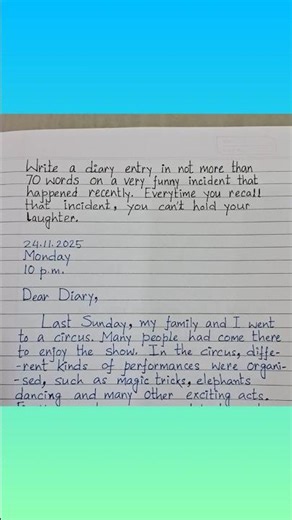 Write a diary entry in not more than
70 words on a very funny incident that
happened recently. Everytime you recall
that incident, you can't hold your
laughter.
24.11.2025
Monday
10 p.m.
Dear Diary,
Last Sunday, my family and I went
to a circus. Many people had come there
to enjoy the show. In the circus, diffe-
-rent kinds of performances were organi-
-sed, such as magic tricks, elephants
dancing and many other exciting acts.